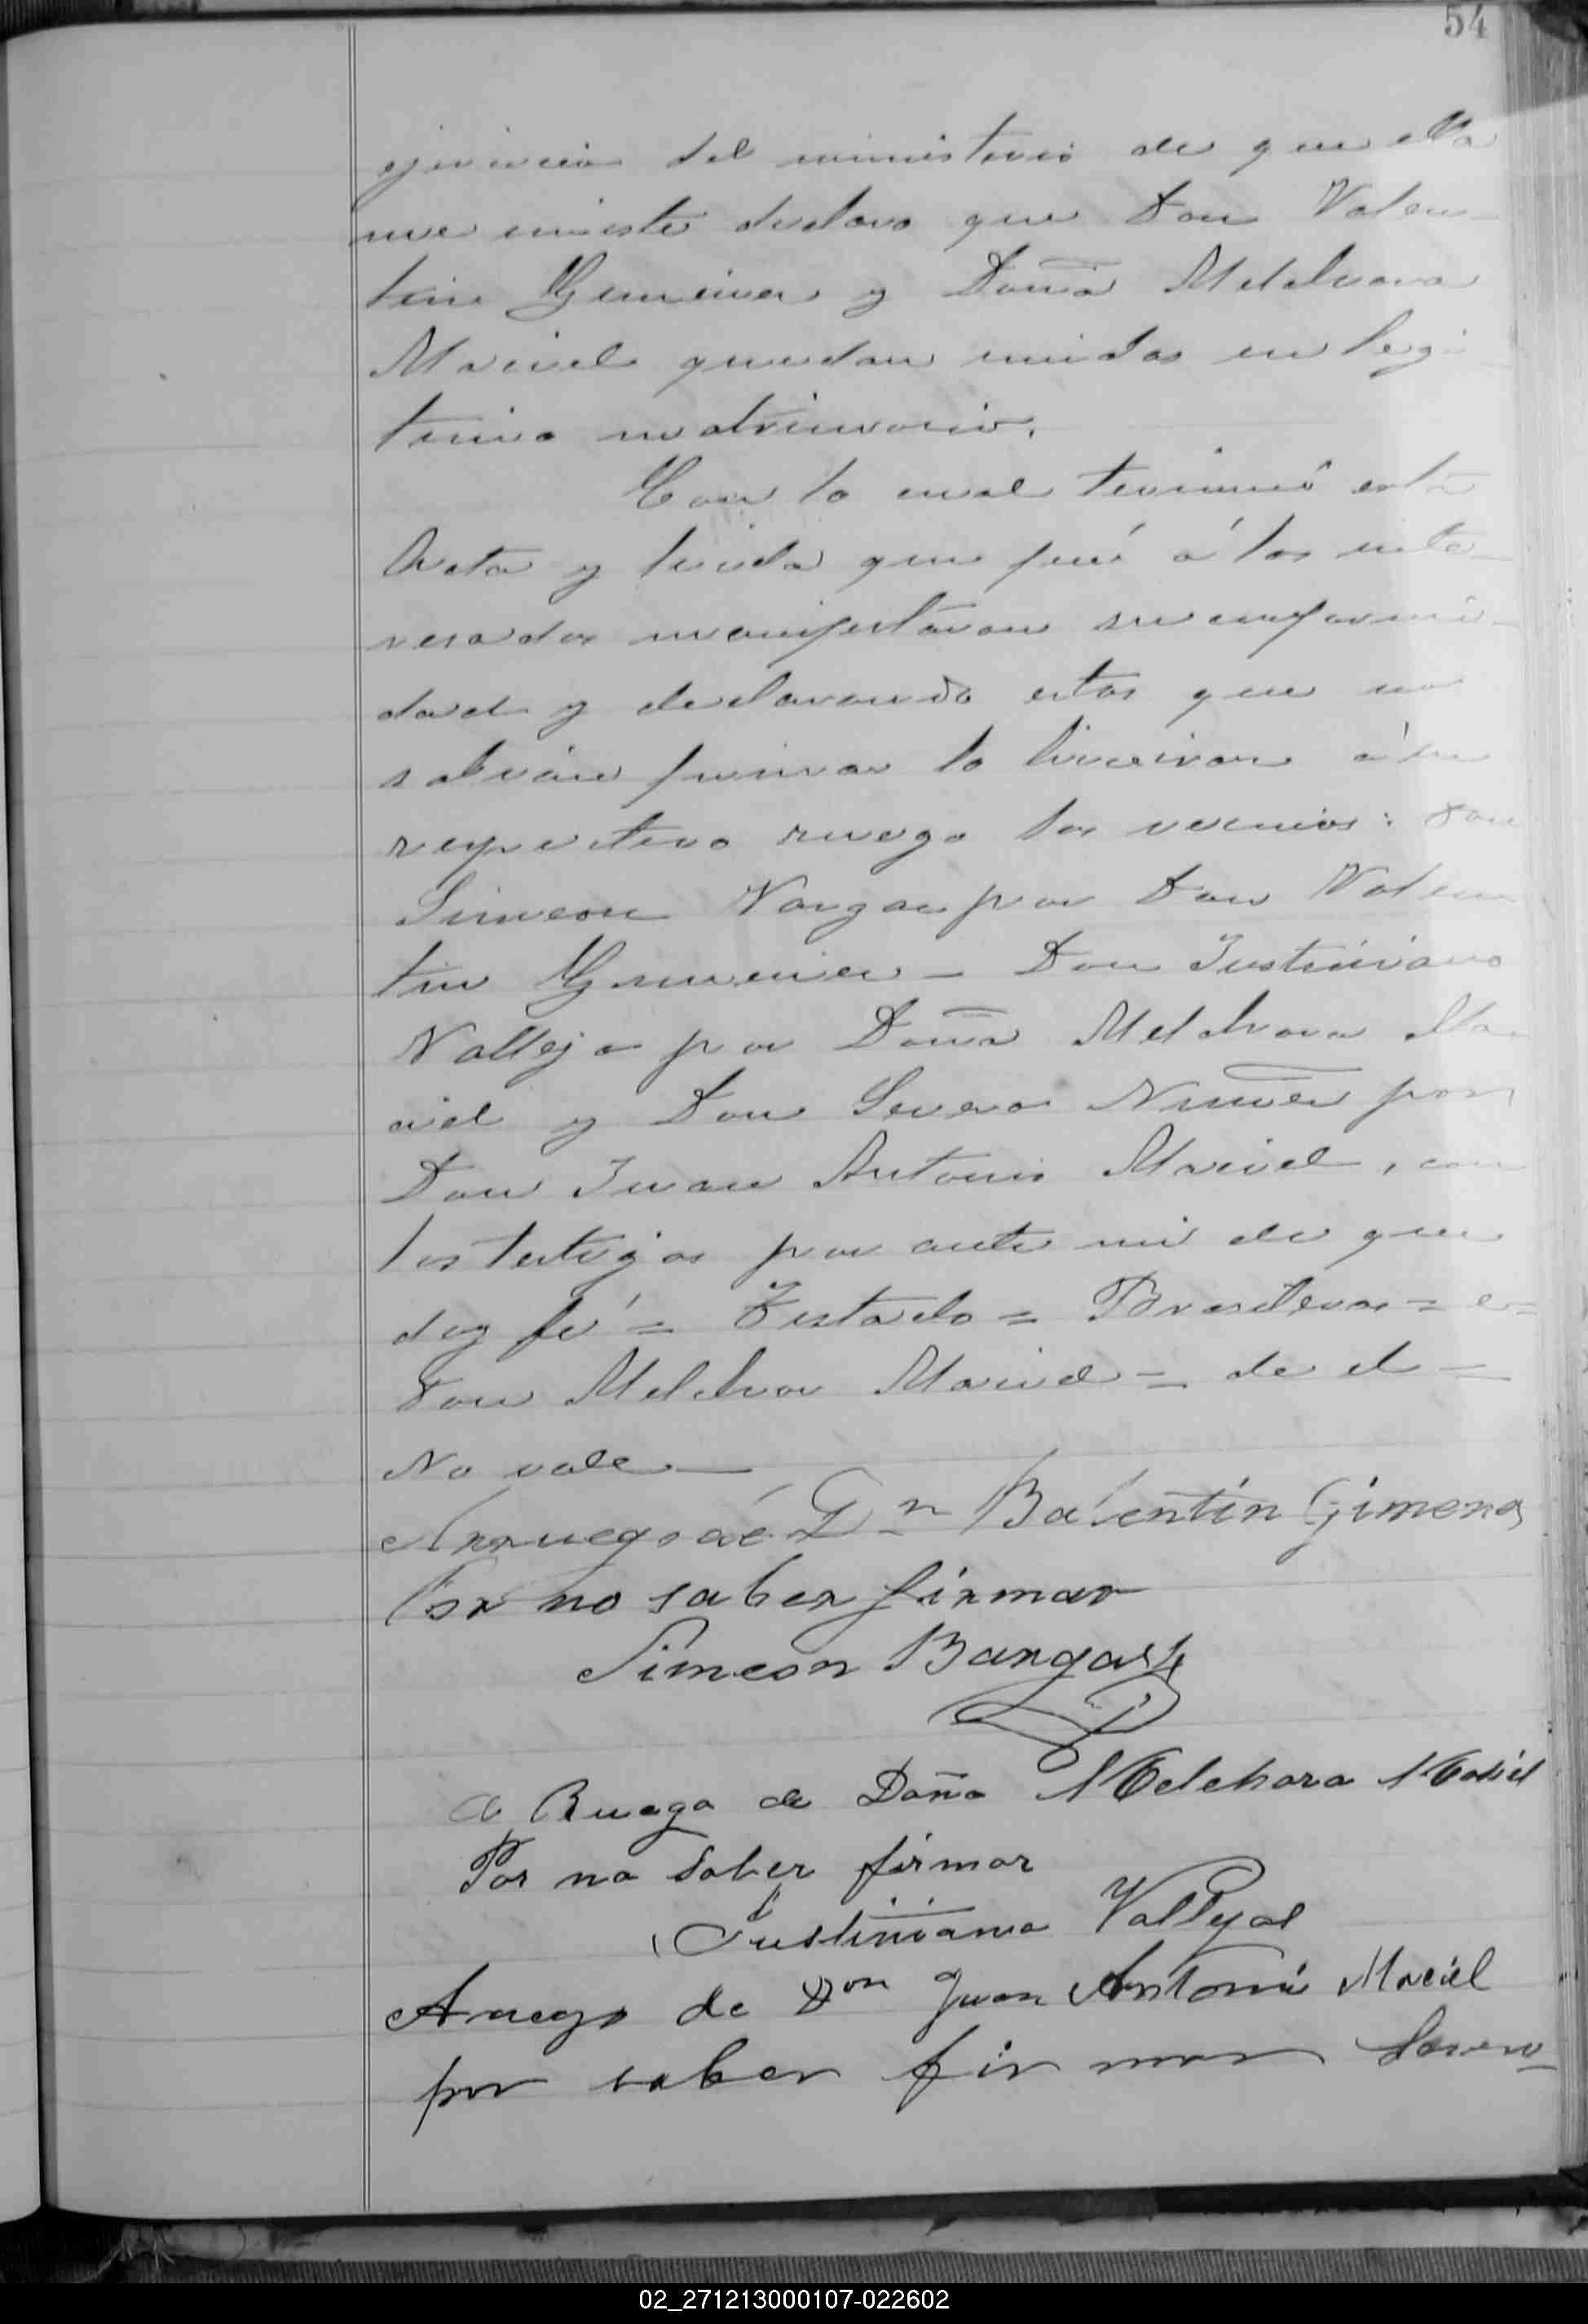 54
ejercicio del ministerio de que ella
me enviste declaro que Don Valen-
tin Gimenez y Doña Melchora
Maciel quedan unidos en legi
timo matrimonio.
Con lo cual terminó esta
Acta y leida que fué á los inte-
resados manifestaron su conformi-
dad y declarando estos que no
sabian firmar lo hicieron á su
respectivo ruego los vecinos: Don
Simeon Vargas por Don Valen
tin Gimenez - Don Justiniano
Vallejos por Doña Melchora Ma
ciel y Don Severo Nuñez por
Don Juan Antonio Maciel, con
los testigos por ante mi de que
doy fé = Testado = Brasilera = e=
Don Melchor Maciel = de el =
No vale —
Arruego de Dn Balentin Gimenes
Por no saber firmar
Simeon Bargas
A Ruego de Doña Melchora Maciel
Por no saber firmar
Justiniano Vallejos
A ruego de Don Juan Antonio Maciel
por saber firmar Severo
02_271213000107-022602